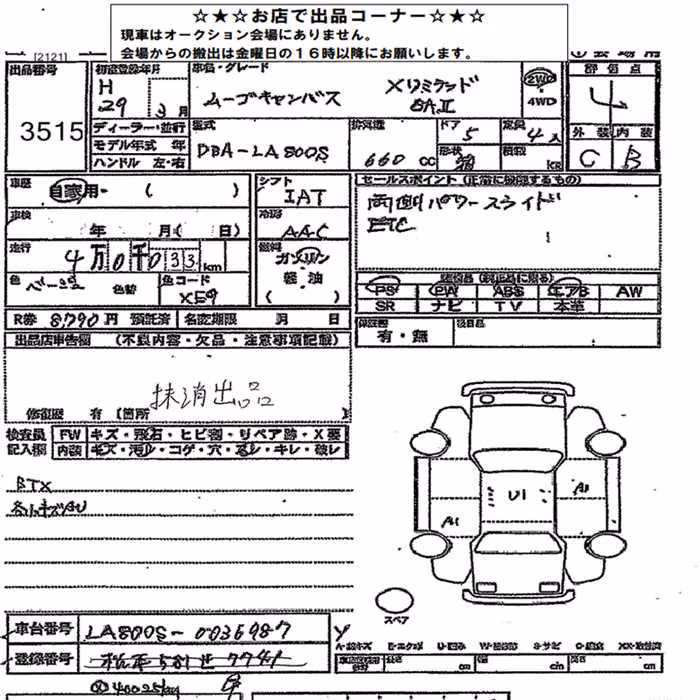 ☆★☆お店で出品コーナー☆★☆
現車はオークション会場にありません。
会場からの搬出は金曜日の１６時以降にお願いします。
[2121]
出品番号 初度登録年月 車名・グレード 評価点
3515
H 29 3月
ムーヴキャンバス
SAⅡ
2WD
4WD
4
ディーラー・並行
モデル年式 年
ハンドル 左・右
型式 DBA-LA800S
排気量 660 cc
ドア 5
形状
定員 4人
積載 KG
外装 内装
C B
車歴 自家用・( )
シフト IAT
車検 年 月( 日)
冷房 AAC
走行 4万0千033km
燃料 ガソリン
軽・油
( )
色 ベージュ 色替
色コード
セールスポイント(正常に機能するもの)
両側パワースライド
ETC
PS PW ABS エアB AW
SR ナビ TV 本革
R券 8,790円 預託済 名変期限 月 日
保証書 有・無 後日品
出品店申告欄 (不良内容・欠品・注意事項記載)
抹消出品
修復歴 有 [箇所
検査員 FW キズ・飛石・ヒビ割・リペア跡・X要
記入欄 内装 キズ・汚レ・コゲ・穴・スレ・キレ・破レ
U1
A1
スペア
車台番号 LA800S-0036987
登録番号
A=線キズ E=エクボ U=凹み W=補修跡 S=サビ C=腐食 XX=取替済
cm cm cm